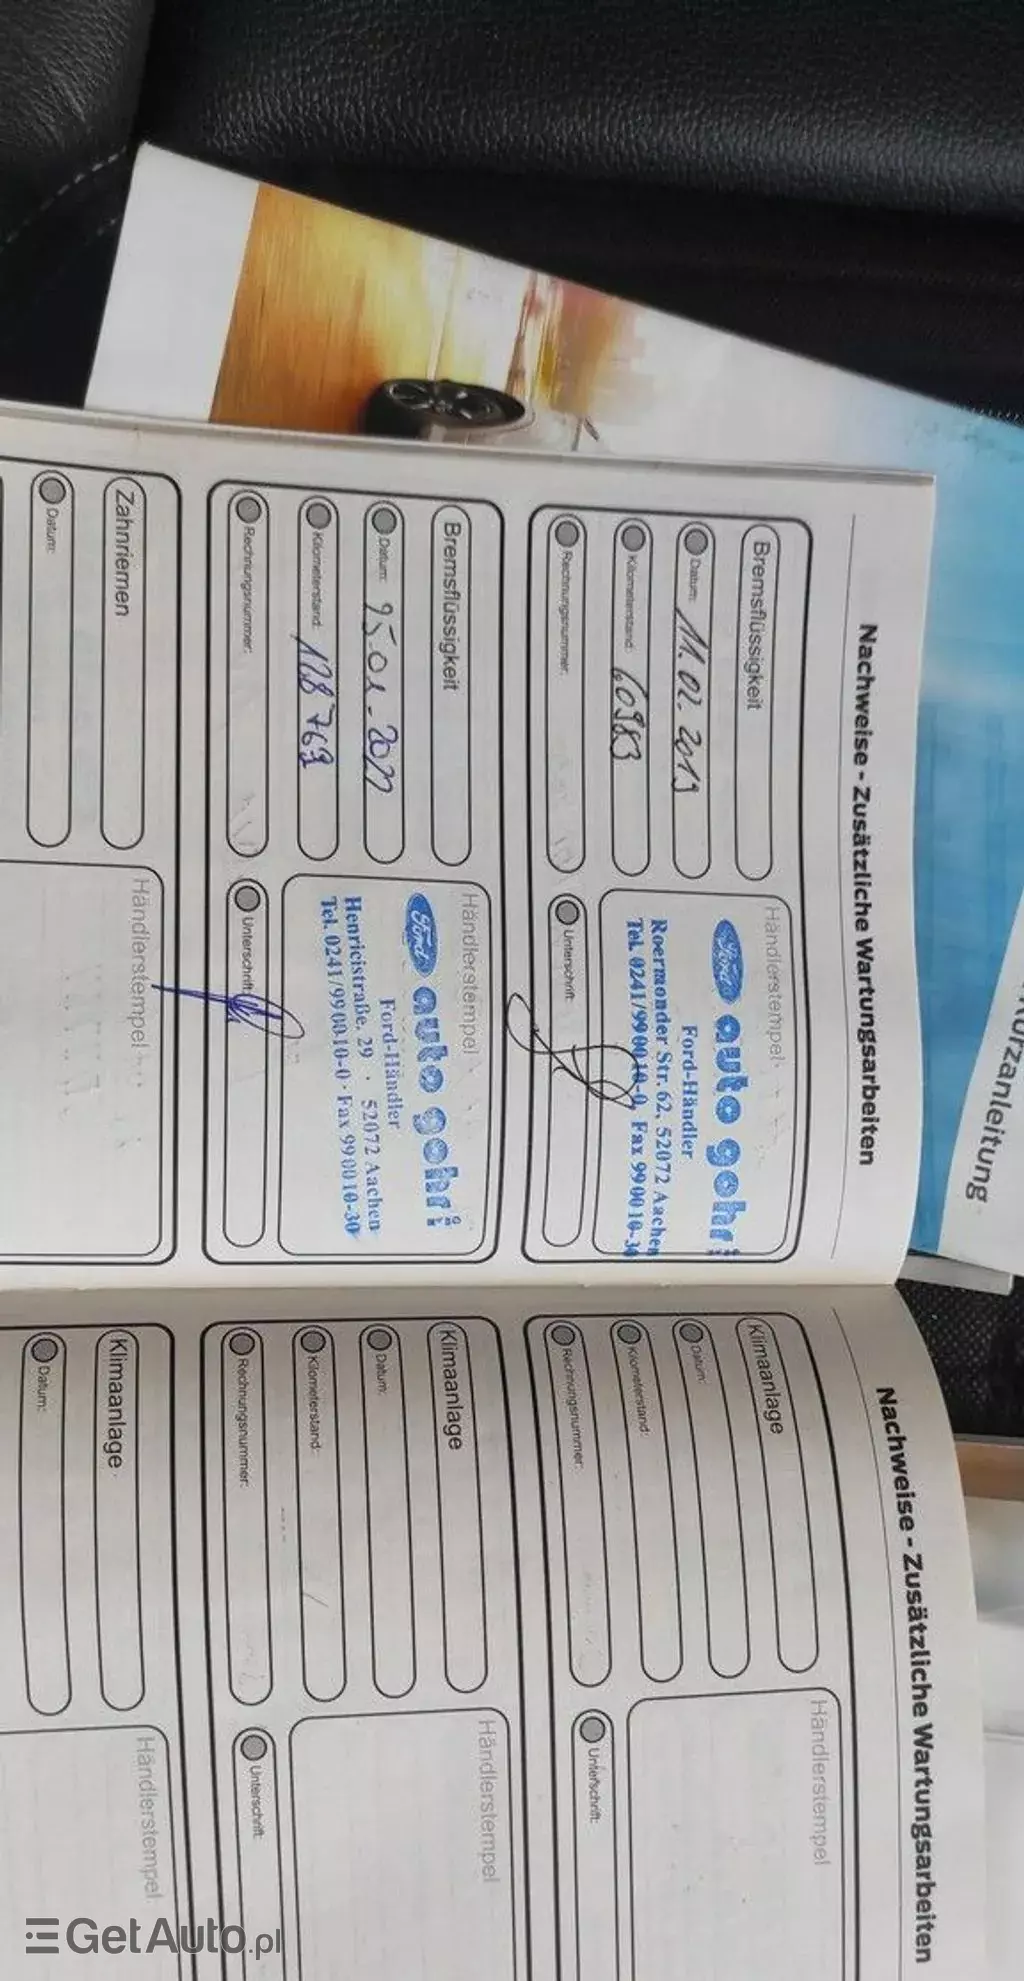 Kurzanleitung
Nachweise - Zusätzliche Wartungsarbeiten
Bremsflüssigkeit
Datum: 11.02.2019
Kilometerstand: 60983
Rechnungsnummer:
Händlerstempel
Ford auto gohr
Ford-Händler
Roermonder Str. 62, 52072 Aachen
Tel. 0241/990010-0, Fax 990010-30
Unterschrift:
Bremsflüssigkeit
Datum: 25.01.2021
Kilometerstand: 118769
Rechnungsnummer:
Händlerstempel
Ford auto gohr
Ford-Händler
Henricistraße, 29 · 52072 Aachen
Tel. 0241/990010-0 · Fax 990010-30
Unterschrift:
Zahnriemen
Datum:
Händlerstempel
Nachweise - Zusätzliche Wartungsarbeiten
Klimaanlage
Datum:
Kilometerstand:
Rechnungsnummer:
Händlerstempel
Unterschrift:
Klimaanlage
Datum:
Kilometerstand:
Rechnungsnummer:
Händlerstempel
Unterschrift:
Klimaanlage
Datum:
Händlerstempel
GetAuto.pl